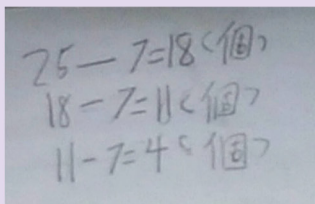 25-7=18(個)
18-7=11(個)
11-7=4(個)